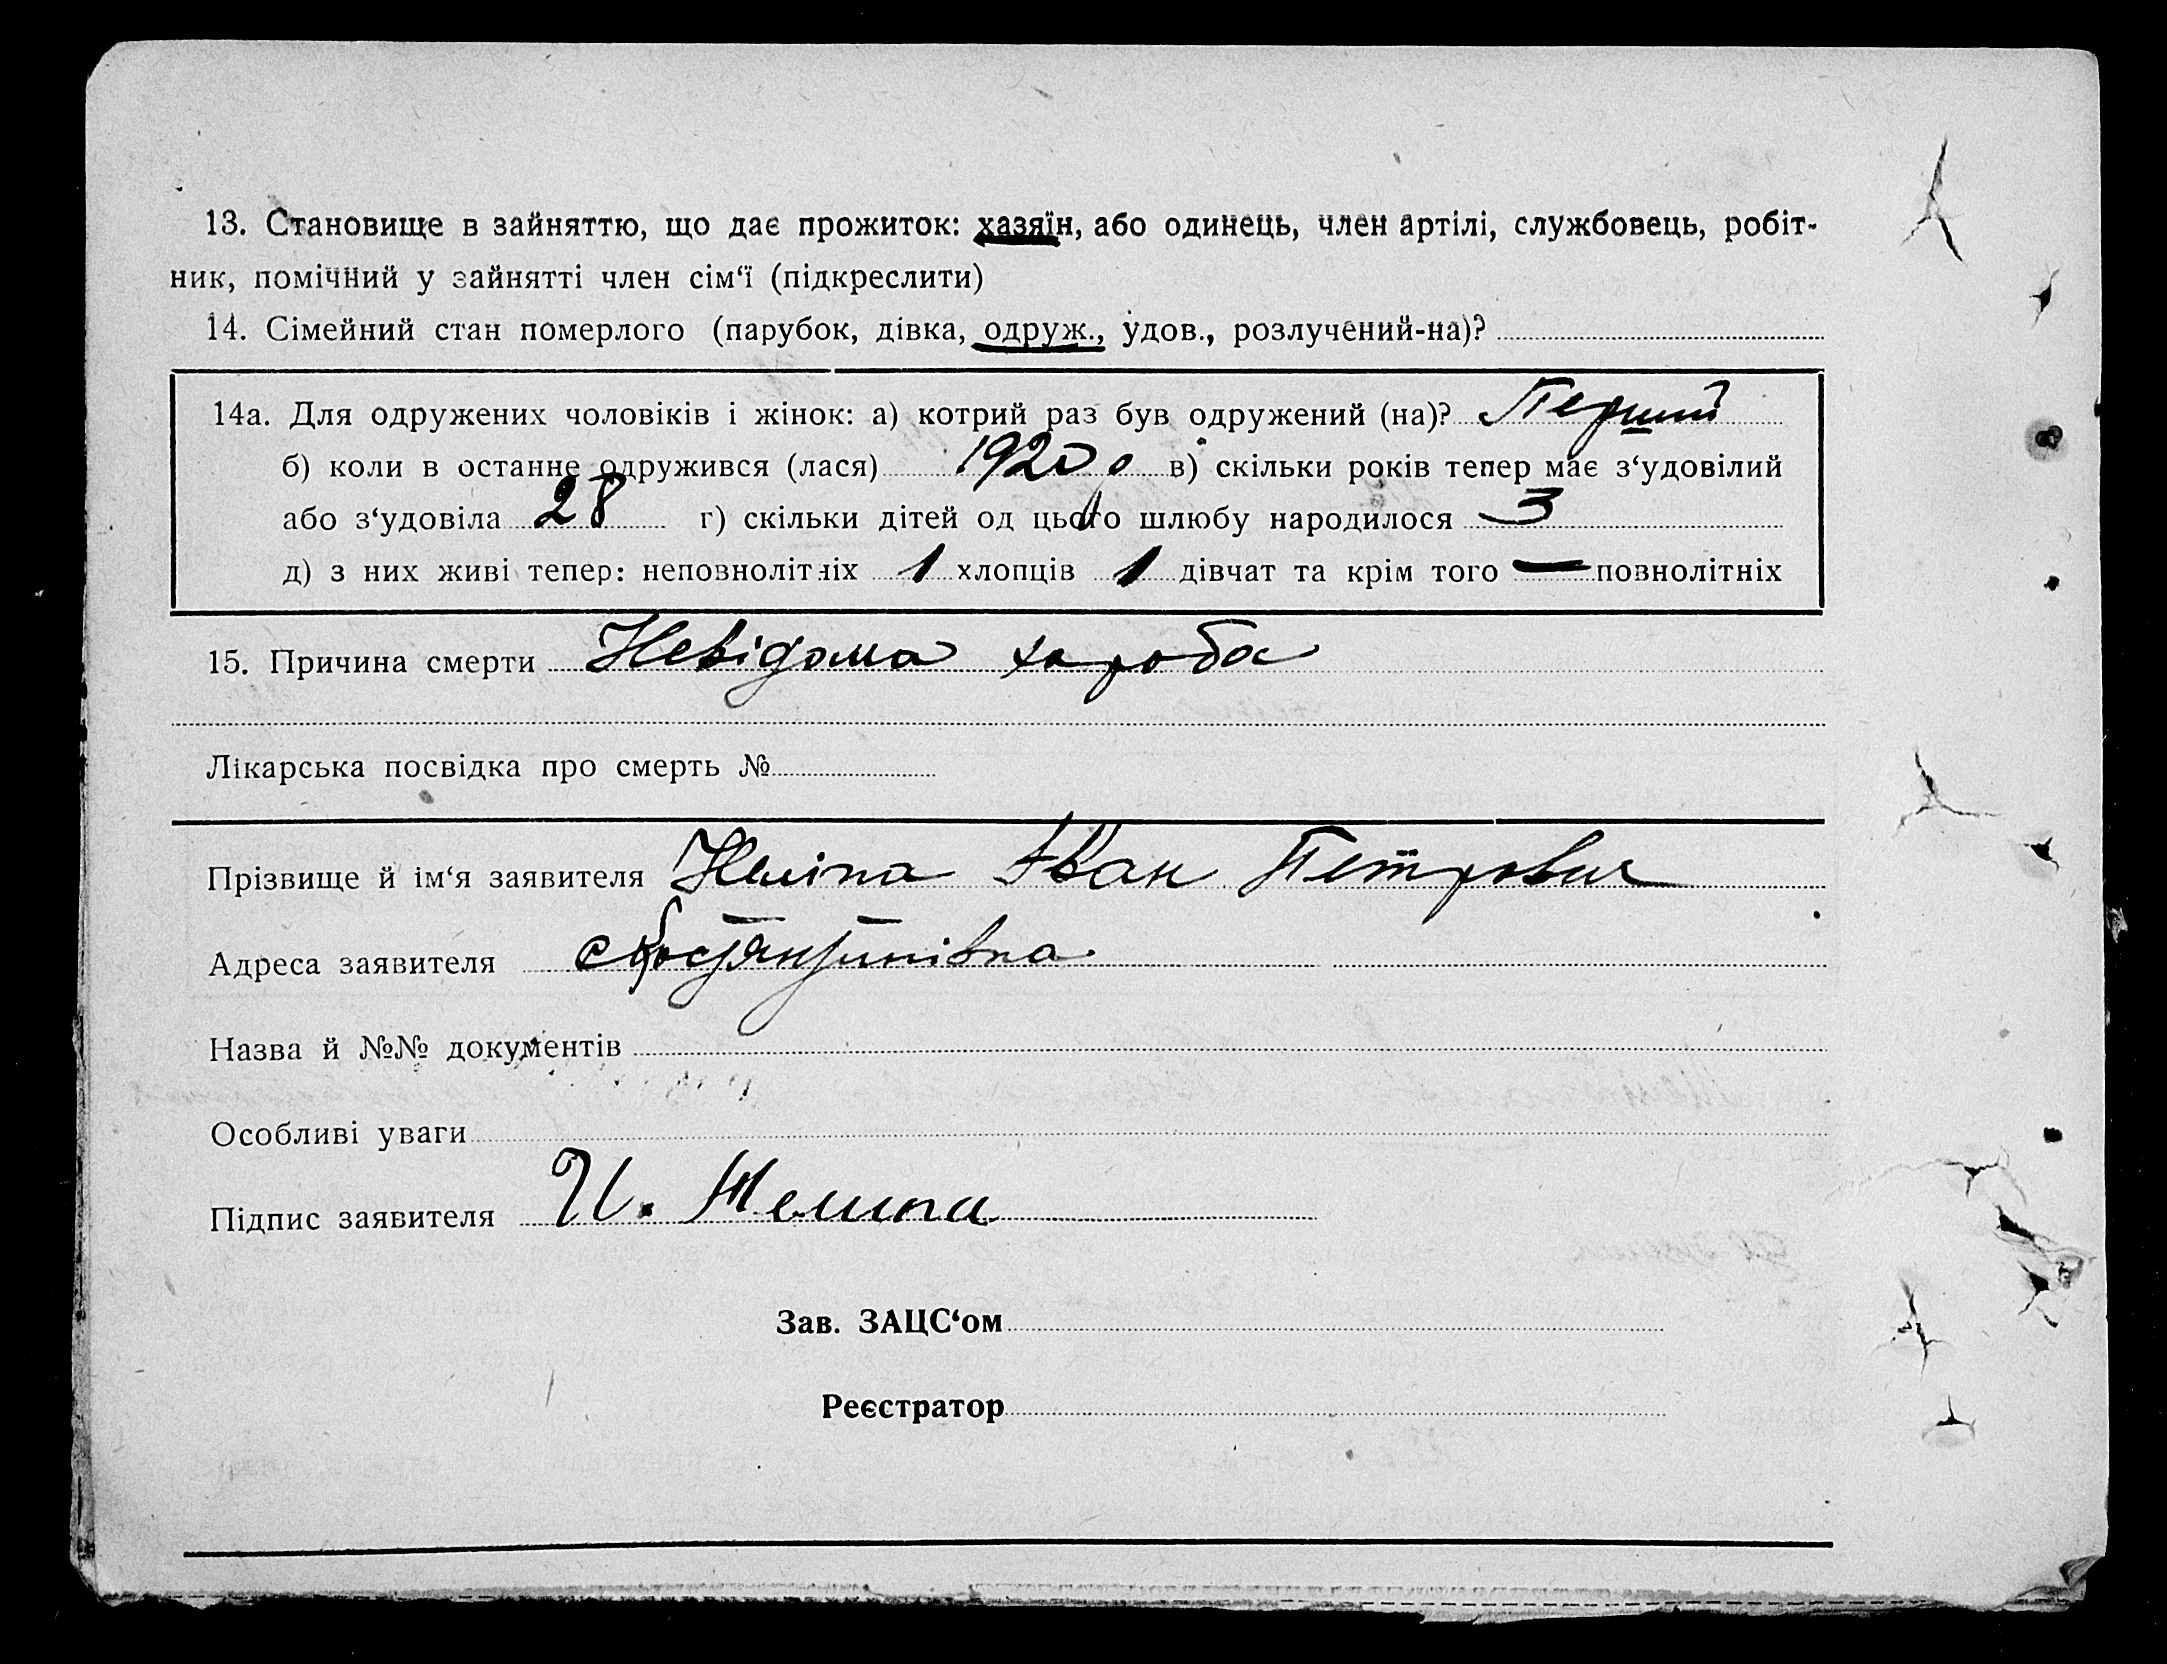 13. Становище в зайняттю, що дає прожиток: хазяїн, або одинець, член артілі, службовець, робіт-
ник, помічний у зайнятті член сім‘ї (підкреслити)
14. Сімейний стан померлого (парубок, дівка, одруж., удов., розлучений-на)?
14а. Для одружених чоловіків і жінок: а) котрий раз був одружений (на)? Перший
б) коли в останнє одружився (лася) 1920 р в) скільки років тепер має з‘удовілий
або з‘удовіла 28 г) скільки дітей од цього шлюбу народилося 3
д) з них живі тепер: неповнолітніх 1 хлопців 1 дівчат та крім того — повнолітніх
15. Причина смерти Невідома хароба
Лікарська посвідка про смерть №
Прізвище й ім‘я заявителя Неліпа Іван Петрович
Адреса заявителя с Костянтинівка
Назва й №№ документів
Особливі уваги
Підпис заявителя И. Нелипа
Зав. ЗАЦС‘ом
Реєстратор